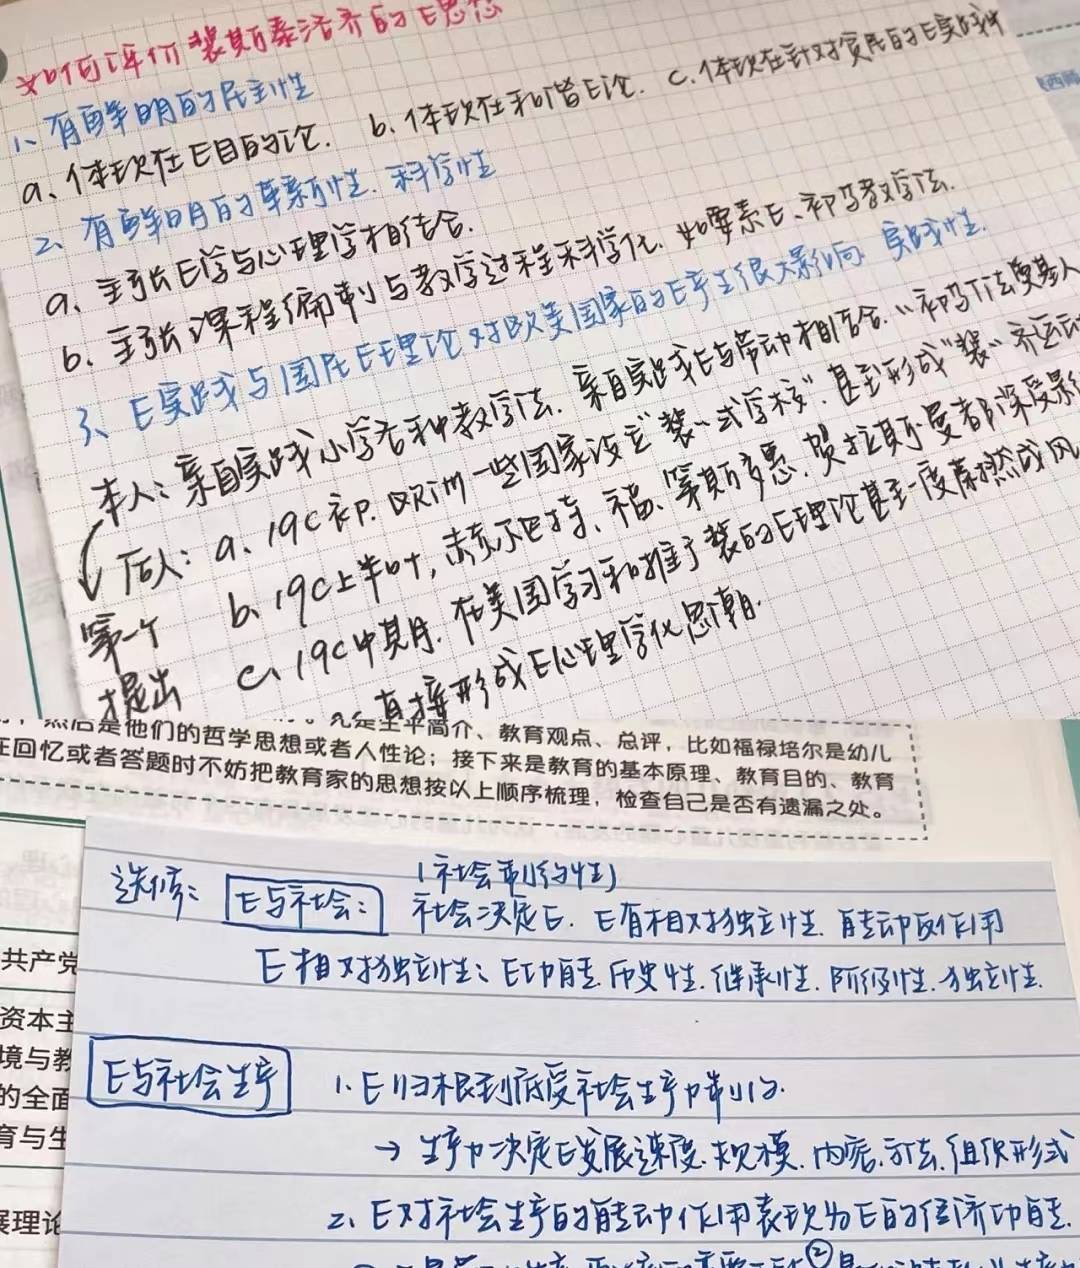 如何评价裴斯泰洛齐的E思想
1、有鲜明的民主性
a、体现在E目的论. b、体现在和谐E论. c.体现在针对贫民的E实践
2、有鲜明的革新性.科学性
a、主张E学与心理学相结合.
b、主张课程编制与教学过程科学化.如要素E、初等教学法.
3、E实践与国民E理论对欧美国家的E产生很大影响 实践性.
本人：亲自实践小学各种教学法.亲自实践E与劳动相结合.“初等方法奠基人
后人：a、19C初.欧洲一些国家设立“裴..式学校”.甚至形成“裴..齐运动
b、19C上半叶,赫尔巴特、福、第斯多惠.贺拉斯·曼都深受影
c、19C中期.在美国学习和推广裴的E理论甚至一度蔚然成风
第一个
提出
直接形成E心理学化思潮.
然后是他们的哲学思想或者人性论；接下来是教育的基本原理、教育目的、教育
回忆或者答题时不妨把教育家的思想按以上顺序梳理，检查自己是否有遗漏之处。
先是生平简介、教育观点、总评，比如福禄培尔是幼儿
(社会制约性)
选修：E与社会： 社会决定E. E有相对独立性.能动反作用
E相对独立性：E功能.历史性.继承性.阶级性.独立性.
E与社会生产 1.E归根到底受社会生产力制约.
→生产力决定E发展速度.规模.内容.方法.组织形式
2、E对社会生产的能动作用表现为E的经济功能.
②
共产党
资本主
境与教
的全面
育与生
展理论